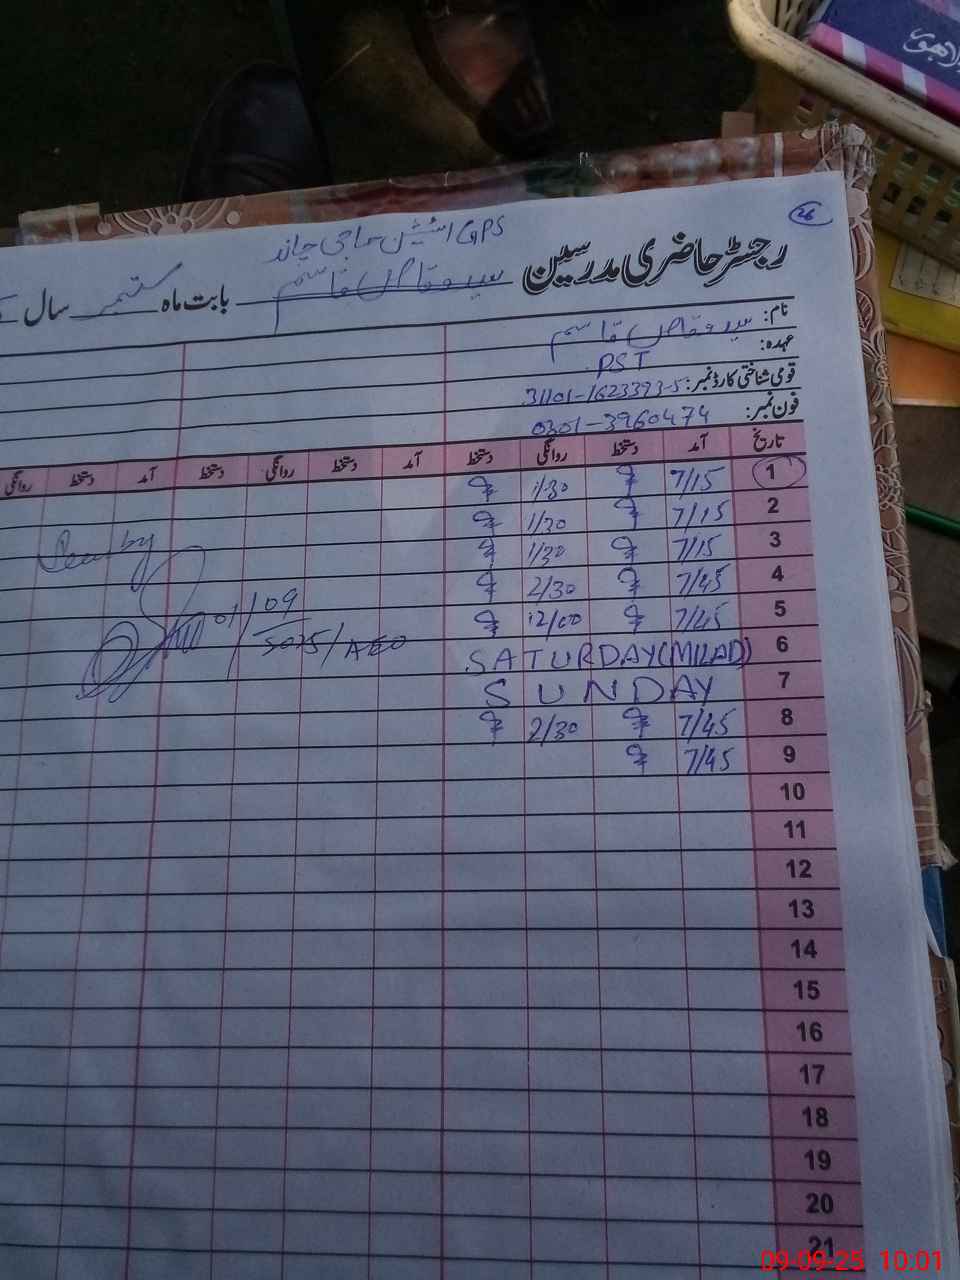 لاہور
26
GPS اسٹیشن حاجی چاند
رجسٹر حاضری مدرسین سید وقاص قاسم بابت ماہ ستمبر سال
نام: سید وقاص قاسم
عہدہ: PST
قومی شناختی کارڈ نمبر: 31101-1623393-5
فون نمبر: 0301-3960474
تاریخ آمد دستخط روانگی دستخط آمد دستخط روانگی دستخط آمد دستخط روانگی
1 7/15 1/30
2 7/15 1/30
3 7/15 1/30
4 7/45 2/30
5 7/45 12/00
6 SATURDAY(MILAD)
7 SUNDAY
8 7/45 2/30
9 7/45
10
11
12
13
14
15
16
17
18
19
20
21
Seen by
01/09
/AEO
09-09-25 10:01